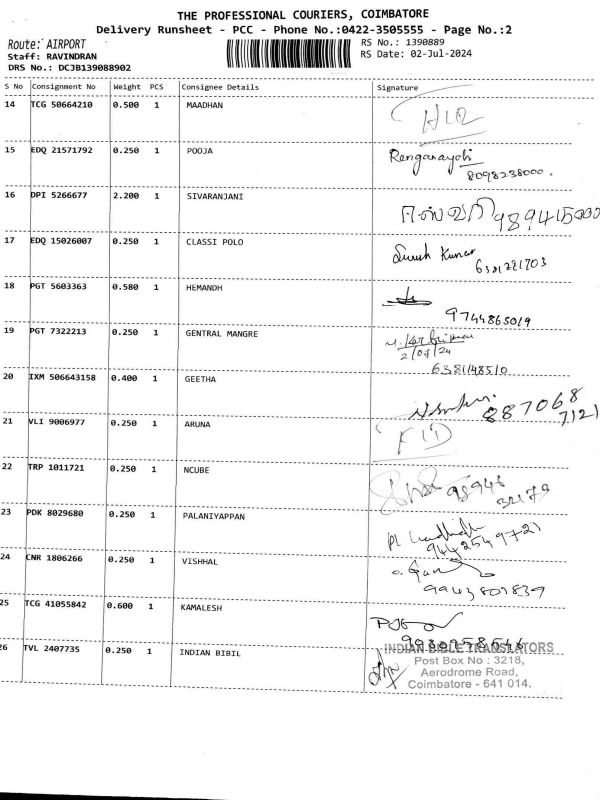 THE PROFESSIONAL COURIERS, COIMBATORE
Delivery Runsheet - PCC - Phone No.:0422-3505555 - Page No.:2
Route: AIRPORT
Staff: RAVINDRAN
DRS No.: DCJB139088902
RS No.: 1390889
RS Date: 02-Jul-2024
S No Consignment No Weight PCS Consignee Details Signature
14 TCG 50664210 0.500 1 MAADHAN
15 EDQ 21571792 0.250 1 POOJA
8098238000.
16 DPI 5266677 2.200 1 SIVARANJANI
17 EDQ 15026007 0.250 1 CLASSI POLO Suresh Kumar
6381281703
18 PGT 5603363 0.580 1 HEMANDH
9744865019
19 PGT 7322213 0.250 1 GENTRAL MANGRE
6381148510
20 IXM 506643158 0.400 1 GEETHA
887068
7121
21 VLI 9006977 0.250 1 ARUNA
22 TRP 1011721 0.250 1 NCUBE
23 PDK 8029680 0.250 1 PALANIYAPPAN
9442549721
24 CNR 1806266 0.250 1 VISHHAL
9943801839
25 TCG 41055842 0.600 1 KAMALESH
26 TVL 2407735 0.250 1 INDIAN BIBIL
INDIAN BIBLE TRANSLATORS
Post Box No : 3218,
Aerodrome Road,
Coimbatore - 641 014.